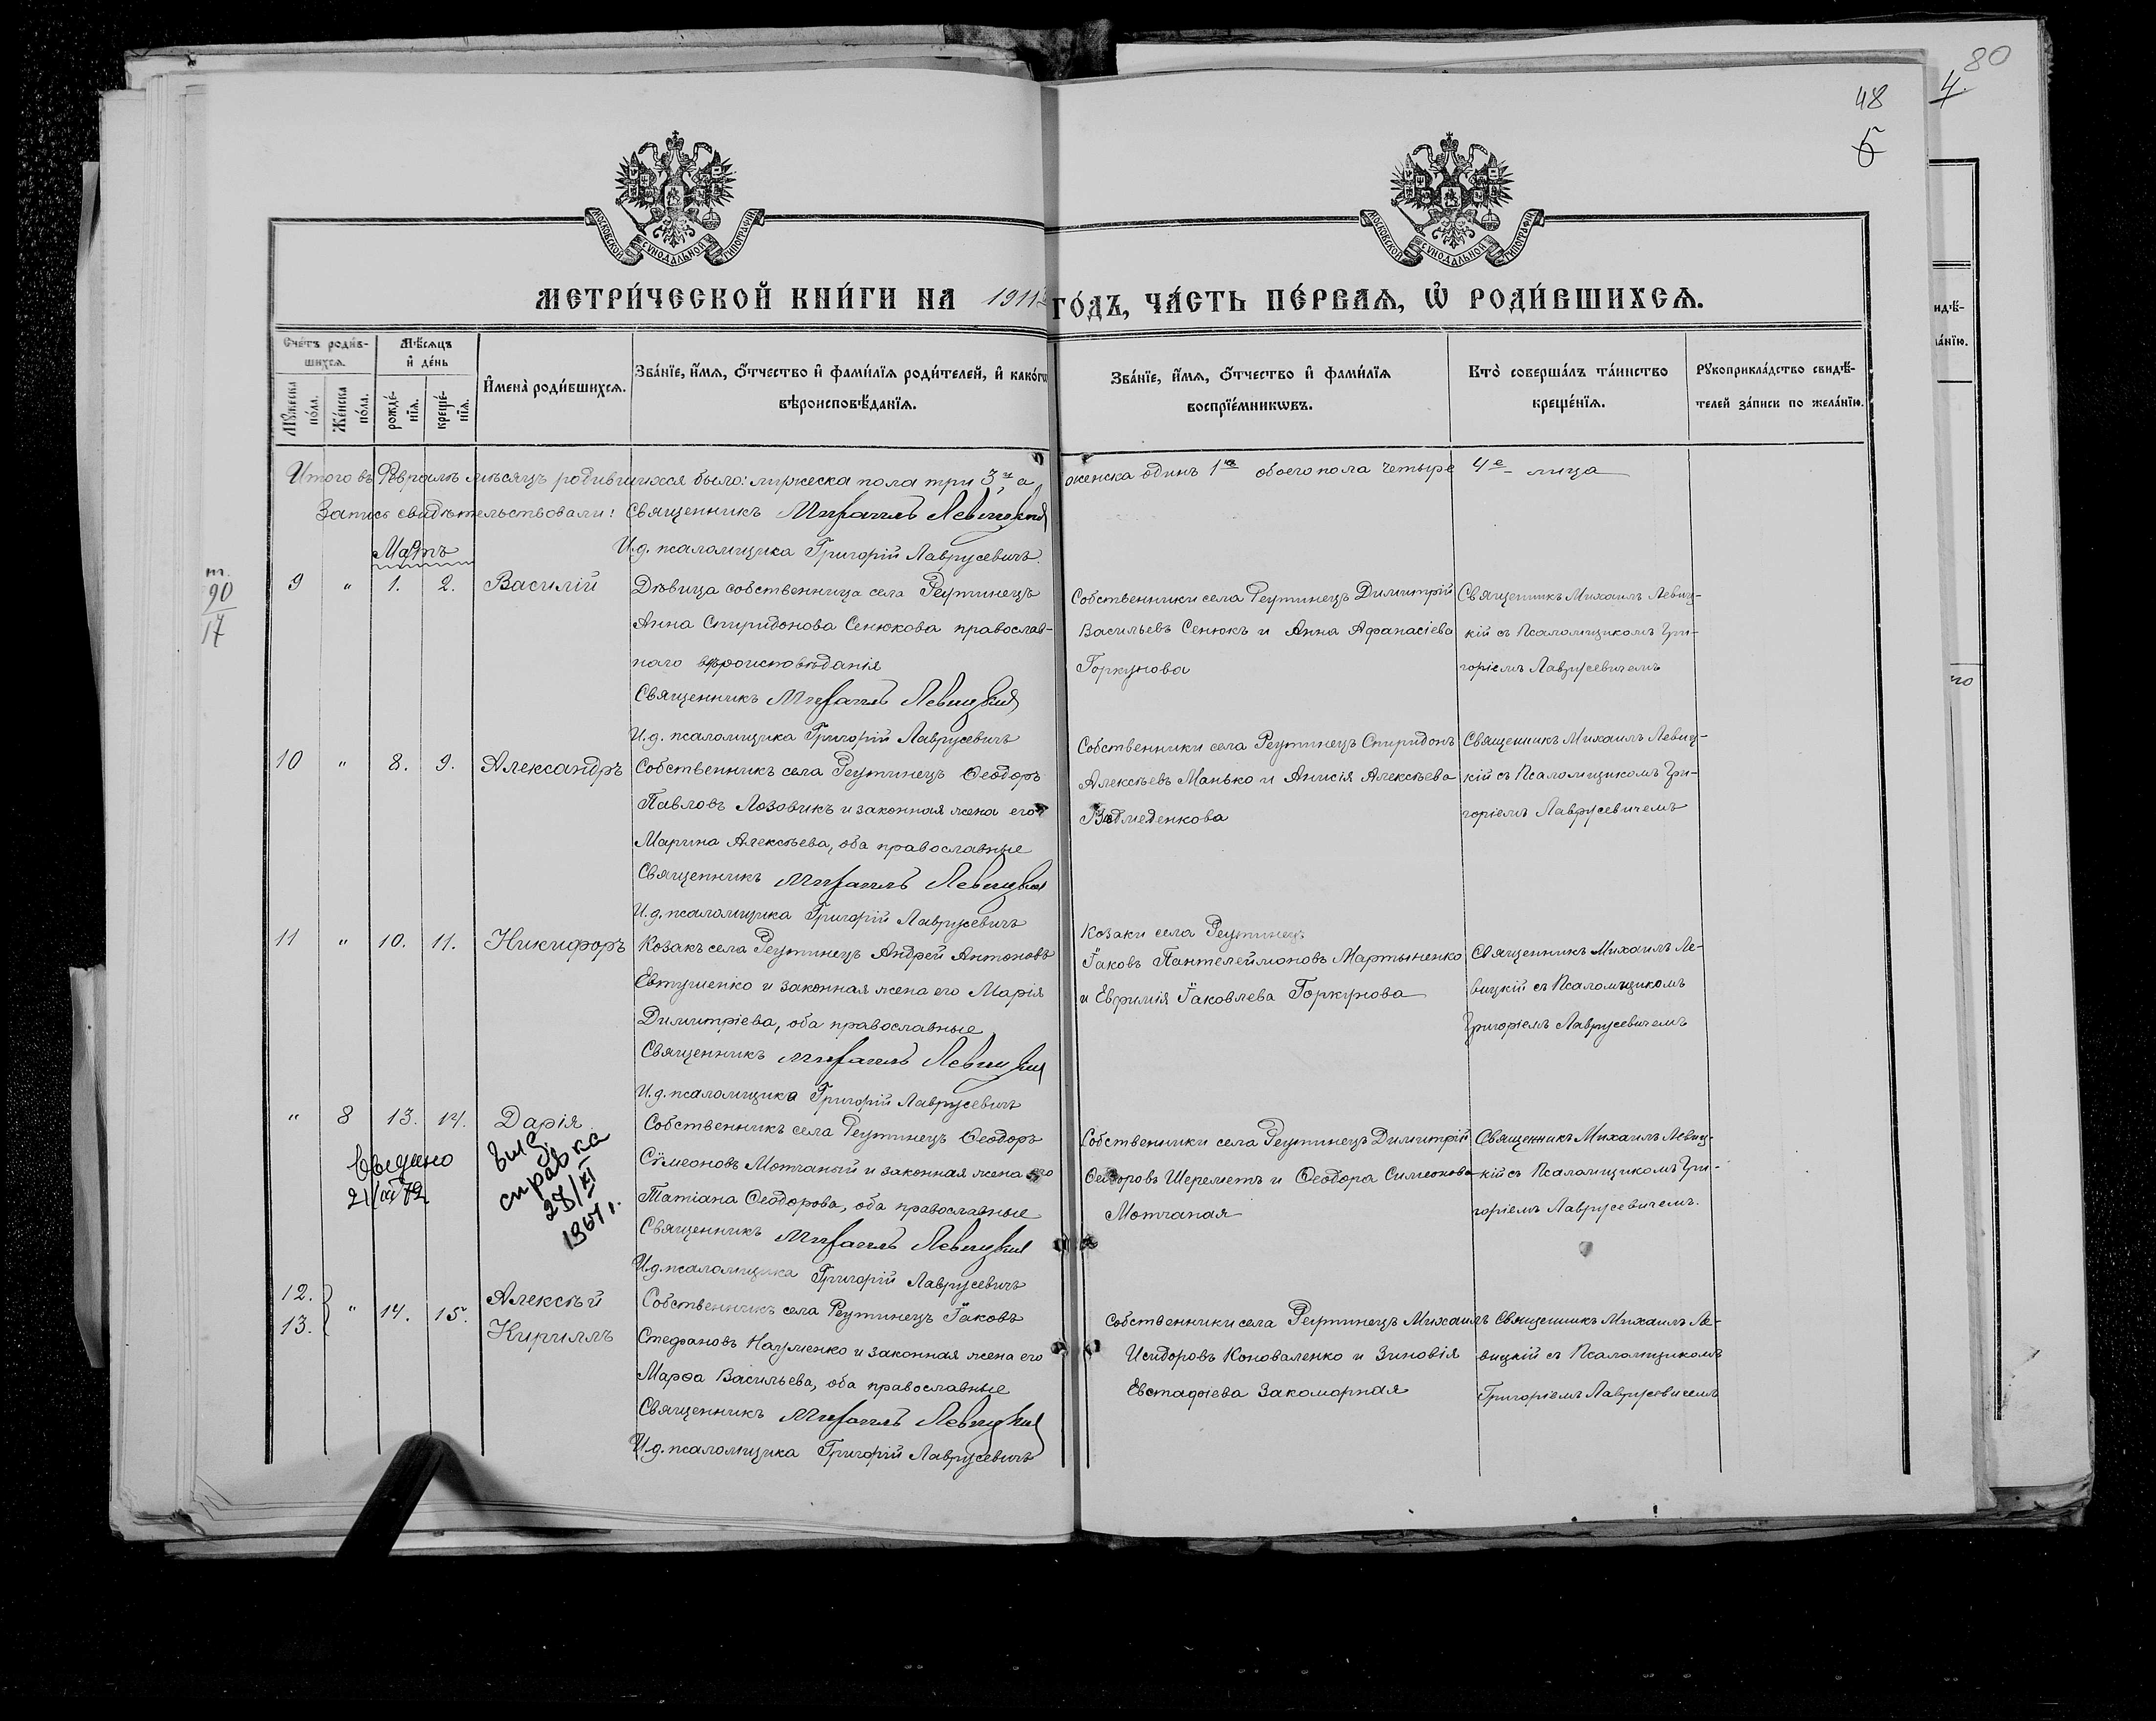 80
4.
48
6
МОСКОВСКОЙ СУНОДАЛЬНОЙ ТИПОГРАФІИ
МОСКОВСКОЙ СУНОДАЛЬНОЙ ТИПОГРАФІИ
МЕТРИ́ЧЕСКОЙ КНИ́ГИ НА 1911 ГО́ДЪ, ЧА́СТЬ ПЕ́РВАѦ, Ѽ РОДИ́ВШИХСѦ.
Сче́тъ роди́в-
шихсѧ.
Мѣ́сѧцъ
и҆ де́нь
Мꙋ́жеска по́ла.
Же́нска по́ла.
рожде́-нїѧ.
креще́-нїѧ.
И҆мена̀ роди́вшихсѧ.
Зва́нїе, и҆́мѧ, ѻ҆́тчество и҆ фами́лїѧ роди́телей, и҆ како́гѡ
вѣроисповѣ́данїѧ.
Зва́нїе, и҆́мѧ, ѻ҆́тчество и҆ фами́лїѧ
воспрїе́мникѡвъ.
Кто̀ соверша́лъ та́инство
креще́нїѧ.
Рꙋкоприкла́дство свидѣ́-
телей за́писи по жела́нїю.
Итого въ Февралѣ мѣсяцѣ родившихся было: мужеска пола три 3, а женска одинъ 1 обоего пола четыре 4е лица
Запись свидѣтельствовали: Священникъ Михаилъ Левицкій
И.д. псаломщика Григорій Лаврусевичъ.
Мартъ
90
17
9 " 1. 2. Василій
Дѣвица собственница села Реутинецъ
Анна Спиридонова Сенюкова православ-
наго вѣроисповѣданія
Священникъ Михаилъ Левицкій
И.д. псаломщика Григорій Лаврусевичъ
Собственники села Реутинецъ Димитрій
Васильевъ Сенюкъ и Анна Афанасіева
Горкунова
Священникъ Михаилъ Левиц-
кій съ Псаломщикомъ Гри-
горіемъ Лаврусевичемъ
10 " 8. 9. Александръ
Собственникъ села Реутинецъ Ѳеодоръ
Павловъ Лозовикъ и законная жена его
Марина Алексѣева, оба православные
Священникъ Михаилъ Левицкій
И.д. псаломщика Григорій Лаврусевичъ
Собственники села Реутинецъ Спиридонъ
Алексѣевъ Манько и Анисія Алексѣева
Ведмеденкова
Священникъ Михаилъ Левиц-
кій съ Псаломщикомъ Гри-
горіемъ Лаврусевичемъ
11 " 10. 11. Никифоръ
Козакъ села Реутинецъ Андрей Антоновъ
Евтушенко и законная жена его Марія
Димитріева, оба православные
Священникъ Михаилъ Левицкій
И.д. псаломщика Григорій Лаврусевичъ
Козаки села Реутинецъ
Іаковъ Пантелеймоновъ Мартыненко
и Евфимія Іаковлева Горкунова
Священникъ Михаилъ Ле-
вицкій съ Псаломщикомъ
Григоріемъ Лаврусевичемъ
" 8 13. 14. Дарія
Видано
21/XI 72
Выд.
справка
28/XI
1967 г.
Собственникъ села Реутинецъ Ѳеодоръ
Сѵмеоновъ Мотчаный и законная жена его
Татіана Ѳеодорова, оба православные
Священникъ Михаилъ Левицкій
И.д. псаломщика Григорій Лаврусевичъ
Собственники села Реутинецъ Димитрій
Ѳеодоровъ Шереметъ и Ѳеодора Симеонова
Мотчаная
Священникъ Михаилъ Левиц-
кій съ Псаломщикомъ Гри-
горіемъ Лаврусевичемъ.
12.
13. " 14. 15. Алексѣй
Кириллъ
Собственникъ села Реутинецъ Іаковъ
Стефановъ Науменко и законная жена его
Марѳа Васильева, оба православные
Священникъ Михаилъ Левицкій
И.д. псаломщика Григорій Лаврусевичъ
Собственники села Реутинецъ Михаилъ
Исидоровъ Коноваленко и Зиновія
Евстафіева Закоморная
Священникъ Михаилъ Ле-
вицкій съ Псаломщикомъ
Григоріемъ Лаврусевичемъ